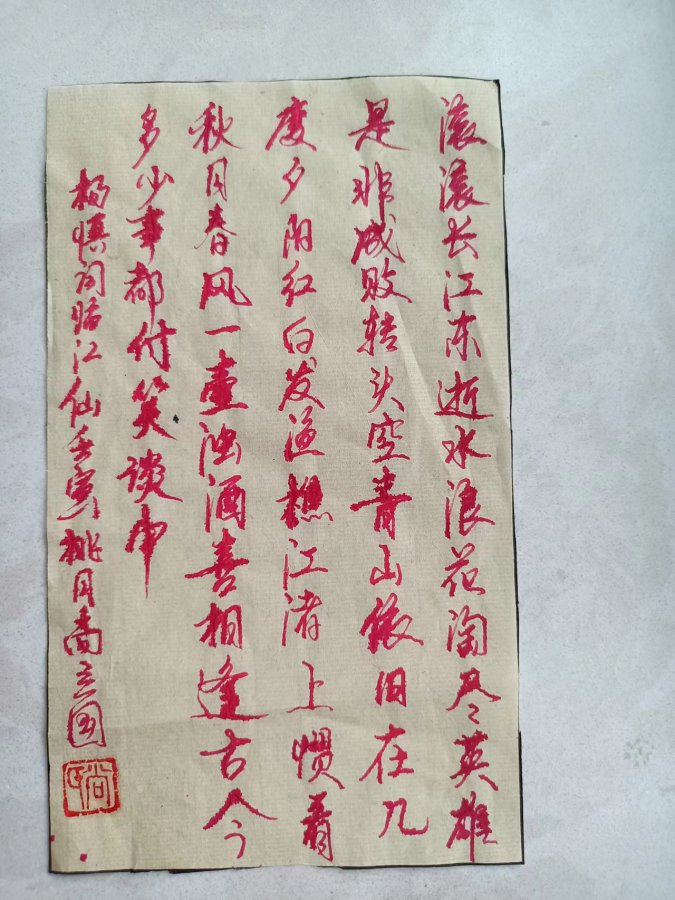 滚滚长江东逝水浪花淘尽英雄
是非成败转头空青山依旧在几
度夕阳红白发渔樵江渚上惯看
秋月春风一壶浊酒喜相逢古今
多少事都付笑谈中
杨慎词临江仙壬寅桃月尚立国
尚